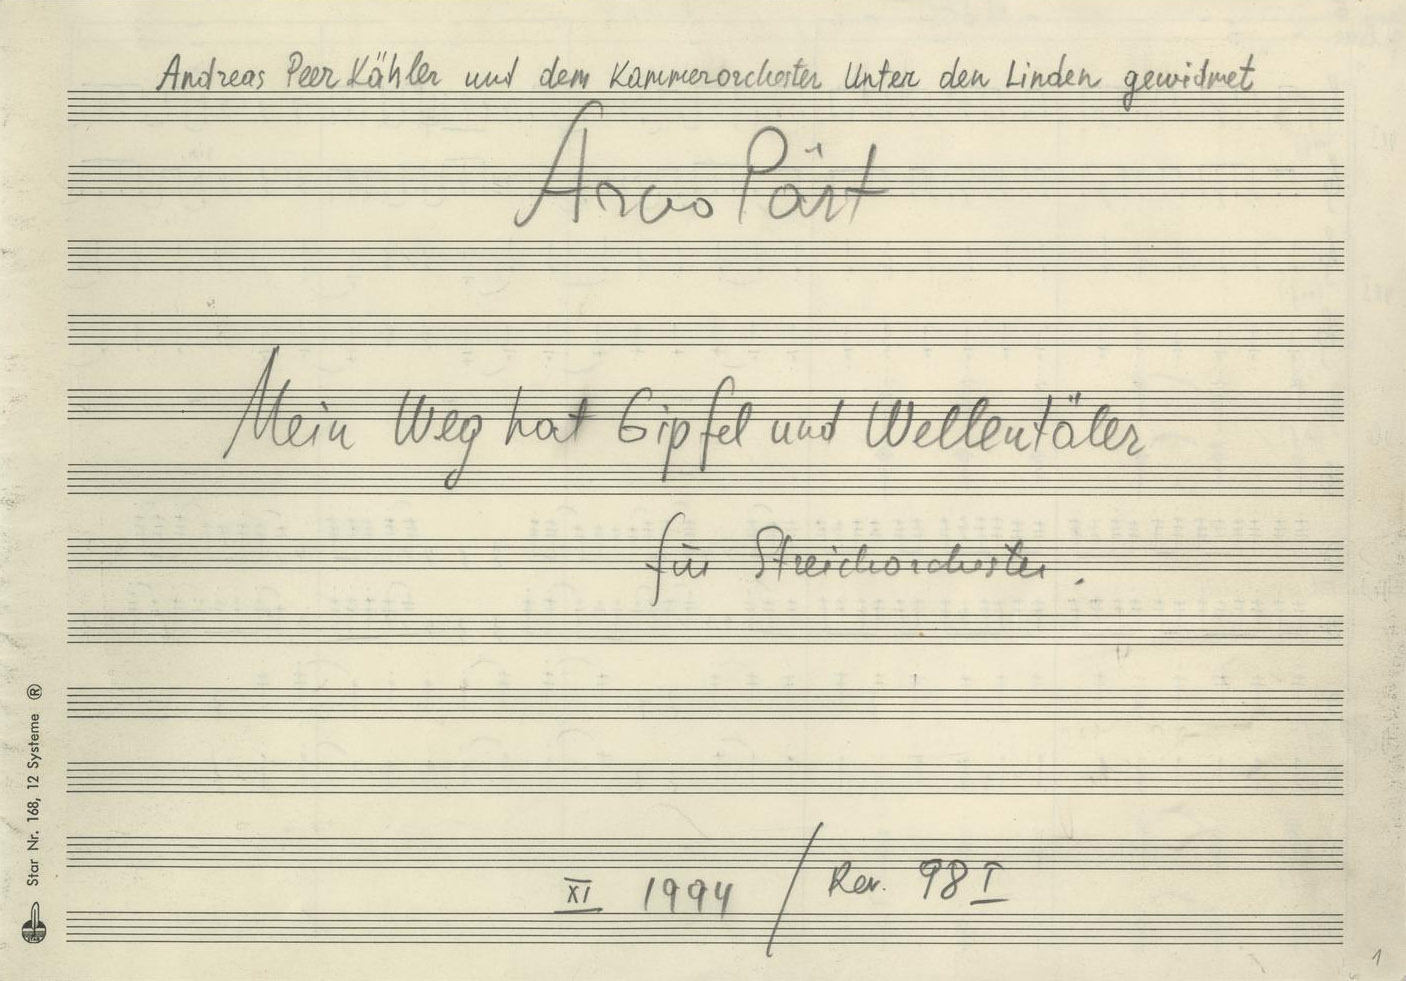 Andreas Peer Kähler und dem Kammerorchester Unter den Linden gewidmet
Arvo Pärt
Mein Weg hat Gipfel und Wellentäler
für Streichorchester.
XI 1994 / Rev. 98 I
Star Nr. 168, 12 Systeme ®
1